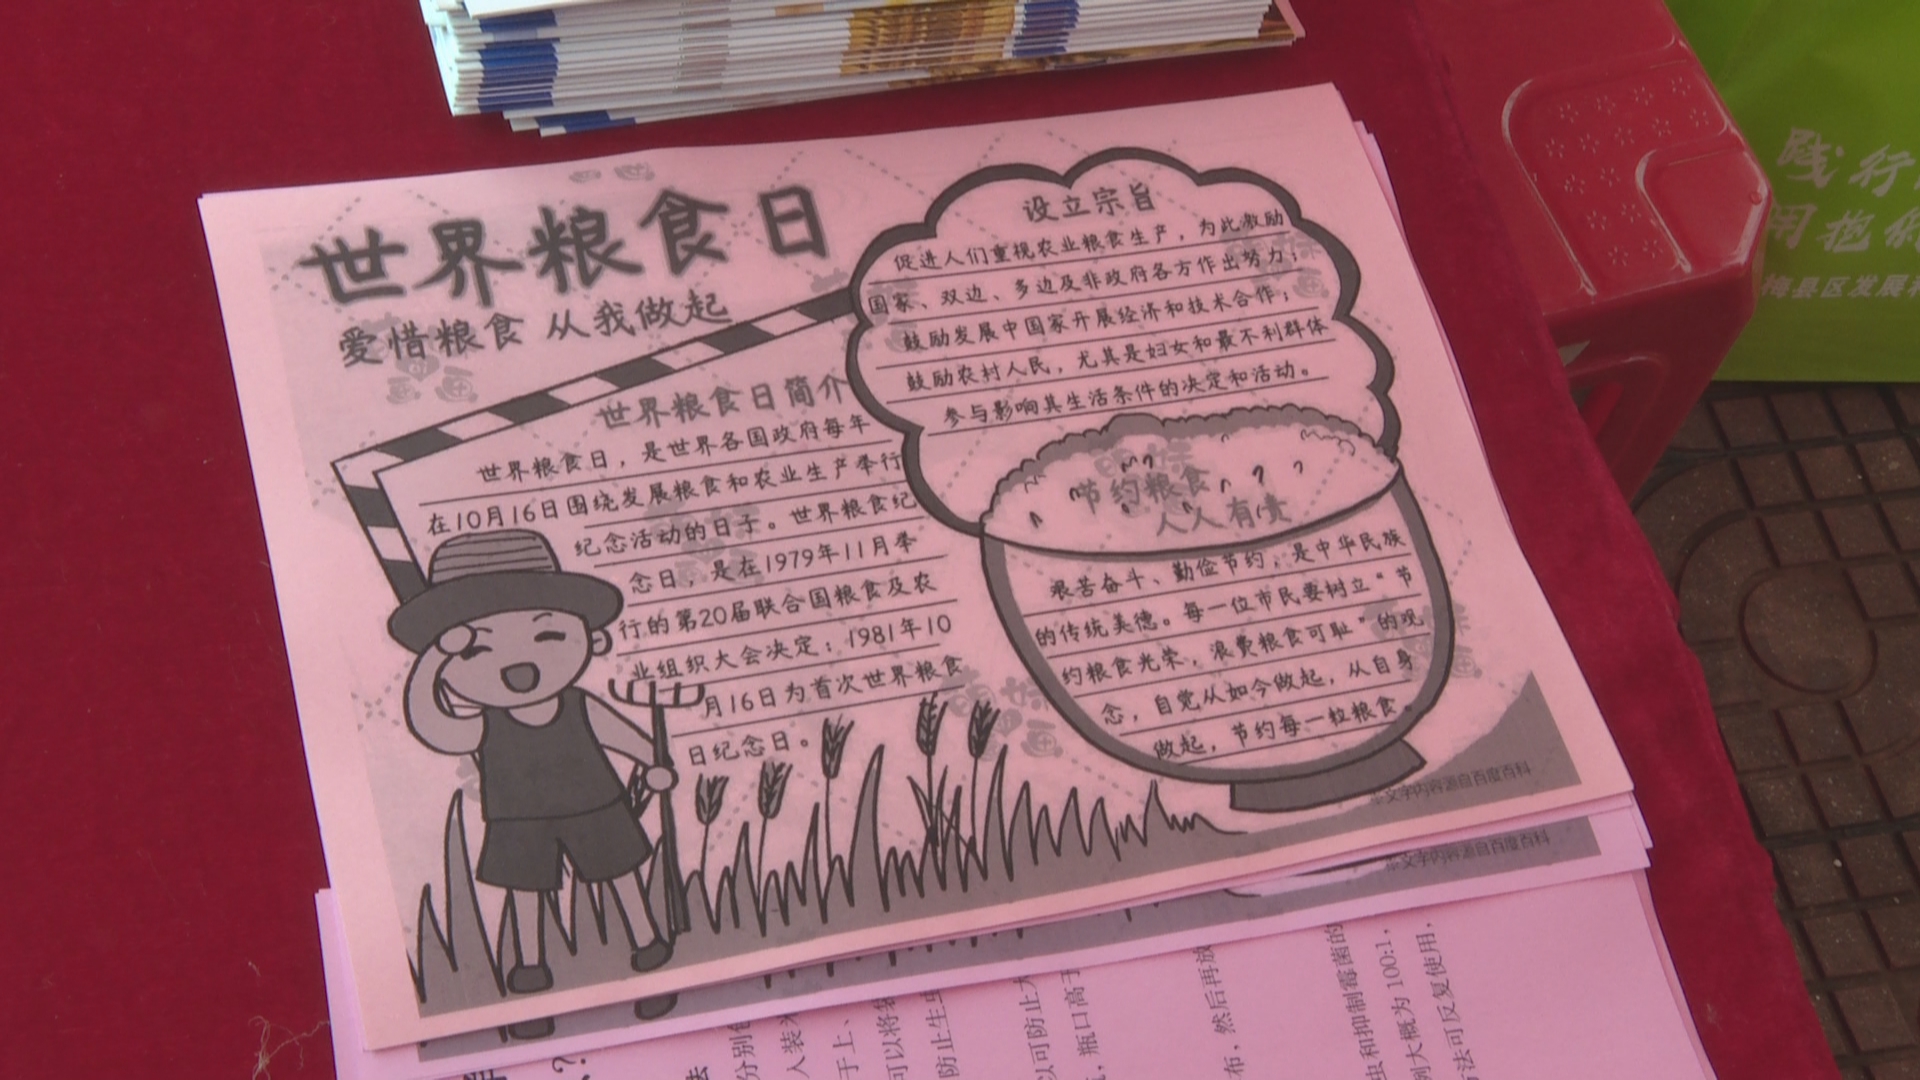 世界粮食日
爱惜粮食 从我做起
世界粮食日简介
世界粮食日，是世界各国政府每年
在10月16日围绕发展粮食和农业生产举行
纪念活动的日子。世界粮食纪
念日，是在1979年11月举
行的第20届联合国粮食及农
业组织大会决定：1981年10
月16日为首次世界粮食
日纪念日。
设立宗旨
促进人们重视农业粮食生产，为此激励
国家、双边、多边及非政府各方作出努力；
鼓励发展中国家开展经济和技术合作；
鼓励农村人民，尤其是妇女和最不利群体
参与影响其生活条件的决定和活动。
节约粮食
人人有责
艰苦奋斗、勤俭节约，是中华民族
的传统美德。每一位市民要树立“节
约粮食光荣，浪费粮食可耻”的观
念，自觉从如今做起，从自身
做起，节约每一粒粮食。
文字内容源自百度百科
文字内容源自百度百科
分别
人装
于上、
可以将
防止生
以可防止
，瓶口高于
布，然后再放
虫和抑制霉菌的
例大概为100:1，
法可反复使用，
践行
用抱
梅县区发展